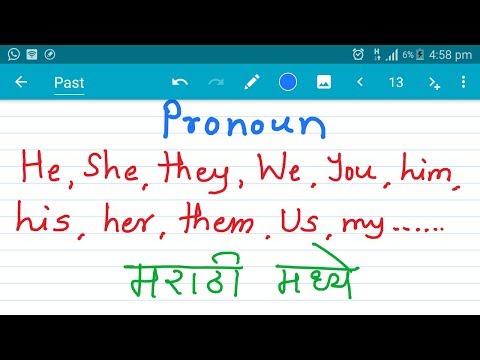 6% 4:58 pm
Past 13
Pronoun
He, She, they, We, You, him,
his, her, them, Us, my......
मराठी मध्ये